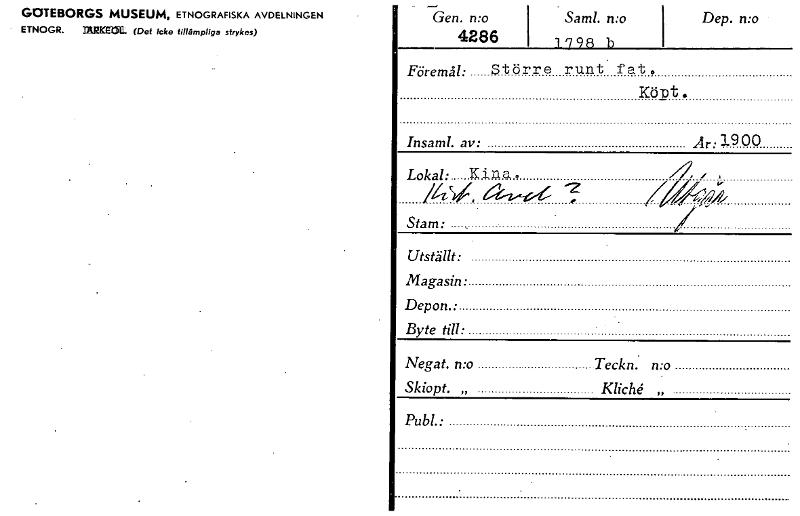 GÖTEBORGS MUSEUM, ETNOGRAFISKA AVDELNINGEN
ETNOGR. ARKEOL. (Det icke tillämpliga strykes)
Gen. n:o Saml. n:o Dep. n:o
4286 1798 b
Föremål: Större runt fat.
Köpt.
Insaml. av: År: 1900
Lokal: Kina.
Hist. Avd ? Utgår
Stam:
Utställt:
Magasin:
Depon.:
Byte till:
Negat. n:o Teckn. n:o
Skiopt. „ Kliché „
Publ.: